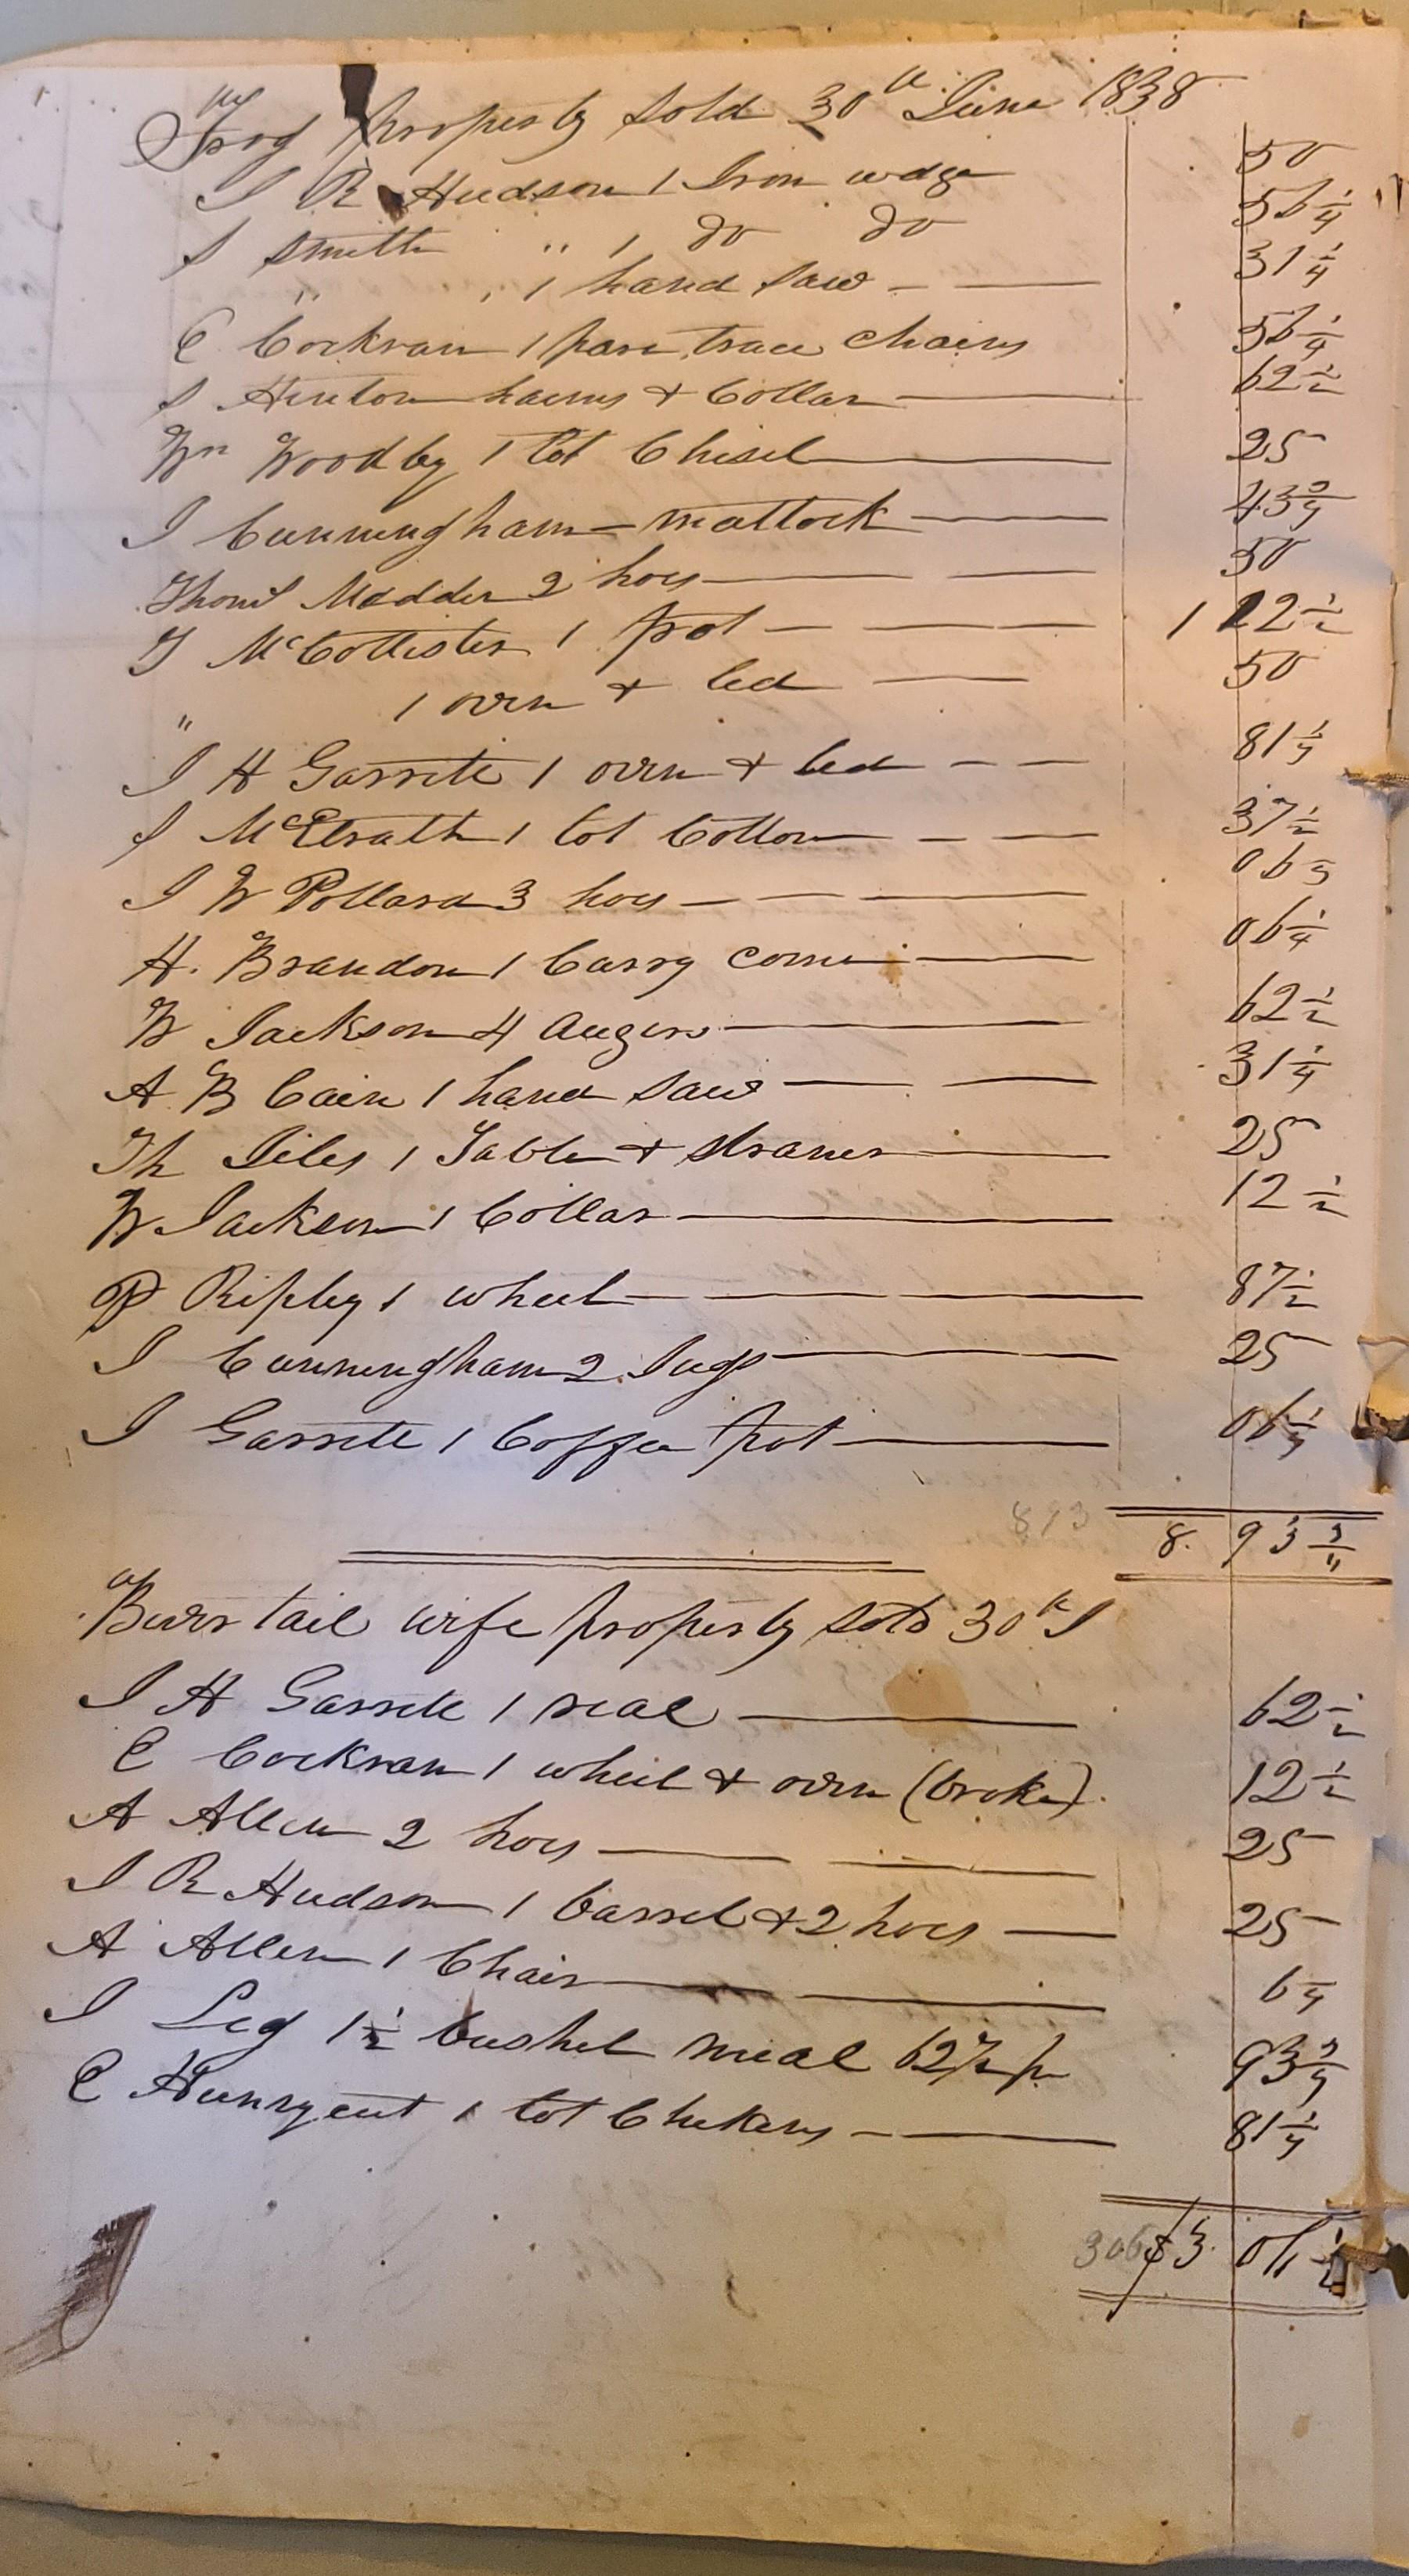 Frog property sold 30th June 1838
J R Hudson 1 Iron wdge 50
S Smith " 1 do do 56 1/4
" " 1 hand saw 31 1/4
C Cockran 1 pare trace chains 56 1/4
S Hinton haems & Collar 62 1/2
Wm Woodby 1 lot Chisel 25
J Cunningham mattock 43 3/4
Thoms Madder 2 hoes 50
J McCollister 1 pot 1 12 1/2
" 1 oven & led 50
J H Garrete 1 oven & led 81 1/4
S McElrath 1 lot Cotton 37 1/2
J W Pollard 3 hoes 06 1/4
H. Brandon 1 Carry come 06 1/4
W Jackson 4 augers 62 1/2
A B Cain 1 hand saw 31 1/4
Th Liles 1 Table & draner 25
W Jackson 1 Collar 12 1/2
P Ripley 1 wheel 87 1/2
J Cunningham 2 Jugs 25
J Garrete 1 Coffee pot 06 1/4
893 8. 93 3/4
Bears tail wife property sold 30th J
J H Garrete 1 real 62 1/2
C Cockran 1 wheel & oven (broke) 12 1/2
A Allen 2 hoes 25
J R Hudson 1 barrel & 2 hoes 25
A Allen 1 Chair 6 1/4
J Leg 1 1/2 bushel meal 62 1/2 pr 93 3/4
C Hunnycut 1 lot Chekens 81 1/4
306 $3. 06 1/4